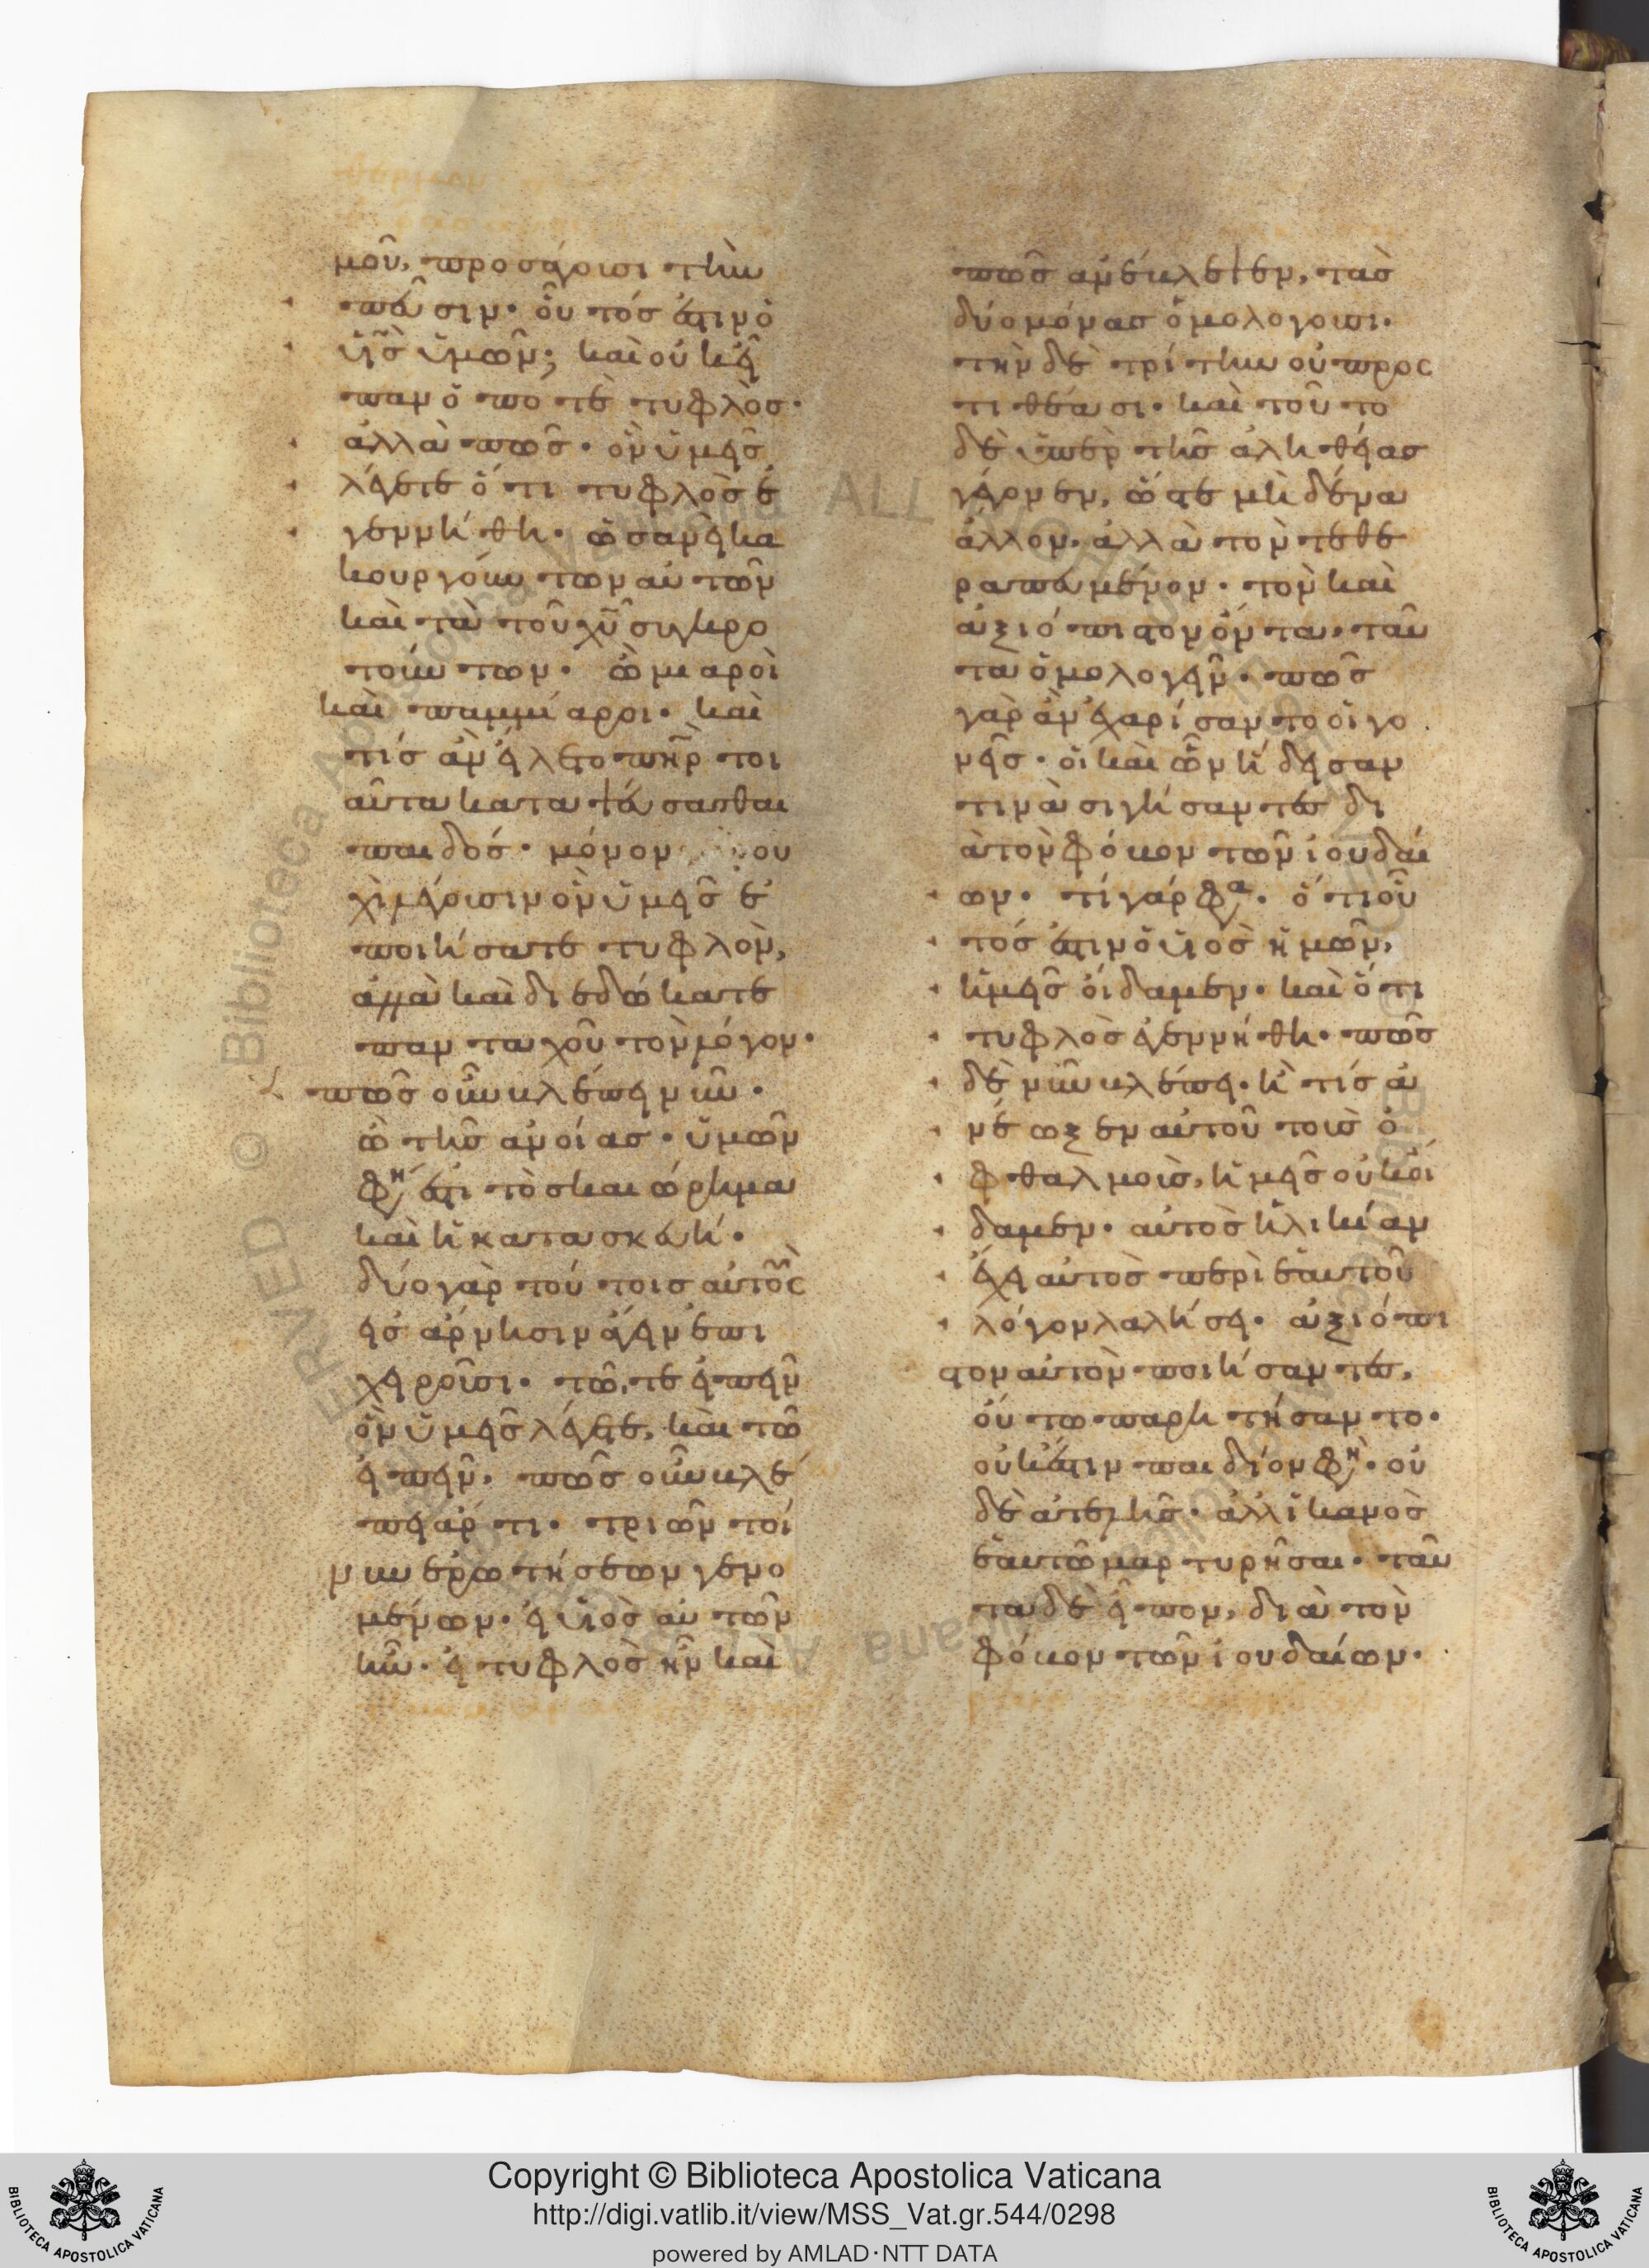 μοῦ, προσάγουσι τὴν
πεῦσιν· οὗτός ἐστιν ὁ
υἱὸς ὑμῶν; καὶ οὐκ εἶ
παν ὁ ποτὲ τυφλὸς·
ἀλλὰ πῶς· ὃν ὑμεῖς
λέγετε ὅτι τυφλὸς ἐ
γεννήθη· ὡσανεὶ κα
κουργούντων αὐτῶν
καὶ τὰ τοῦ χυ συγκρο
τούντων· ὢ μιαροὶ
καὶ παμμίαροι· καὶ
τίς ἂν ἕλετο πηρ τοι
αῦτα καταψεύσασθαι
παιδός· μόνον ου
χὶ λέγουσιν ὃν ὑμεῖς ἐ
ποιήσατε τυφλὸν,
ἀλλὰ καὶ διεδώκατε
πανταχοῦ τὸν λόγον·
πῶς οὖν βλέπει νῦν·
ὢ τῆς ἀνοίας· ὑμῶν
φη ἐστι τὸ σκαιώρημα
καὶ ἡ κατασκευή·
δύο γὰρ τούτοις αὐτοὺς
εἰς ἄρνησιν ἄγειν ἐπι
χειροῦσι· τῶ, τε εἰπεῖν
ὃν ὑμεῖς λέγετε, καὶ τῶ
εἰπεῖν· πῶς οὖν βλέ
πει ἄρτι· τριῶν τοί
νυν ἐρωτήσεων γενο
μένων· εἰ υἱὸς αὐτῶν
ἦν· εἰ τυφλὸς ἦν καὶ
πῶς ἀνέβλεψεν, τὰς
δύο μόνας ὁμολογοῦσι·
τὴν δὲ τρίτην οὐ προς
τιθέασι· καὶ τοῦτο
δὲ ὑπὲρ τῆς ἀληθείας
γέγονεν, ὥστε μηδένα
ἄλλον· ἀλλὰ τὸν τεθε
ραπευμένον· τὸν καὶ
ἀξιόπιστον ὄντα· ταῦ
τα ὁμολογεῖν· πῶς
γὰρ ἂν ἐχαρίσαντο οἱ γο
νεῖς· οἳ καὶ ὧν ἤδεσαν
τινὰ σιγήσαντες δι
ὰ τὸν φόβον τῶν ἰουδαί
ων· τί γάρ φα· ὅτι οὗ
τός ἐστιν ὁ υἱὸς ἡμῶν,
ἡμεῖς οἴδαμεν· καὶ ὅτι
τυφλὸς ἐγεννήθη· πῶς
δὲ νῦν βλέπει· ἢ τίς ἀ
νέωξεν αὐτοῦ τοὺς ὀ
φθαλμοὺς, ἡμεῖς οὐκ οἴ
δαμεν· αὐτὸς ἡλικίαν
ἔχει αὐτὸς περὶ ἑαυτοῦ
λόγον λαλήσει· ἀξιόπι
στον αὐτὸν ποιήσαντες,
οὕτω παρῃτήσαντο·
οὐκ ἔστιν παιδίον φη· οὐ
δὲ ἀτελὴς· ἀλλ ἱκανὸς
ἑαυτῶ μαρτυρῆσαι· ταῦ
τα δὲ εἶπον, διὰ τὸν
φόβον τῶν ἰουδαίων·
Copyright © Biblioteca Apostolica Vaticana
http://digi.vatlib.it/view/MSS_Vat.gr.544/0298
powered by AMLAD·NTT DATA
BIBLIOTECA APOSTOLICA VATICANA
BIBLIOTECA APOSTOLICA VATICANA